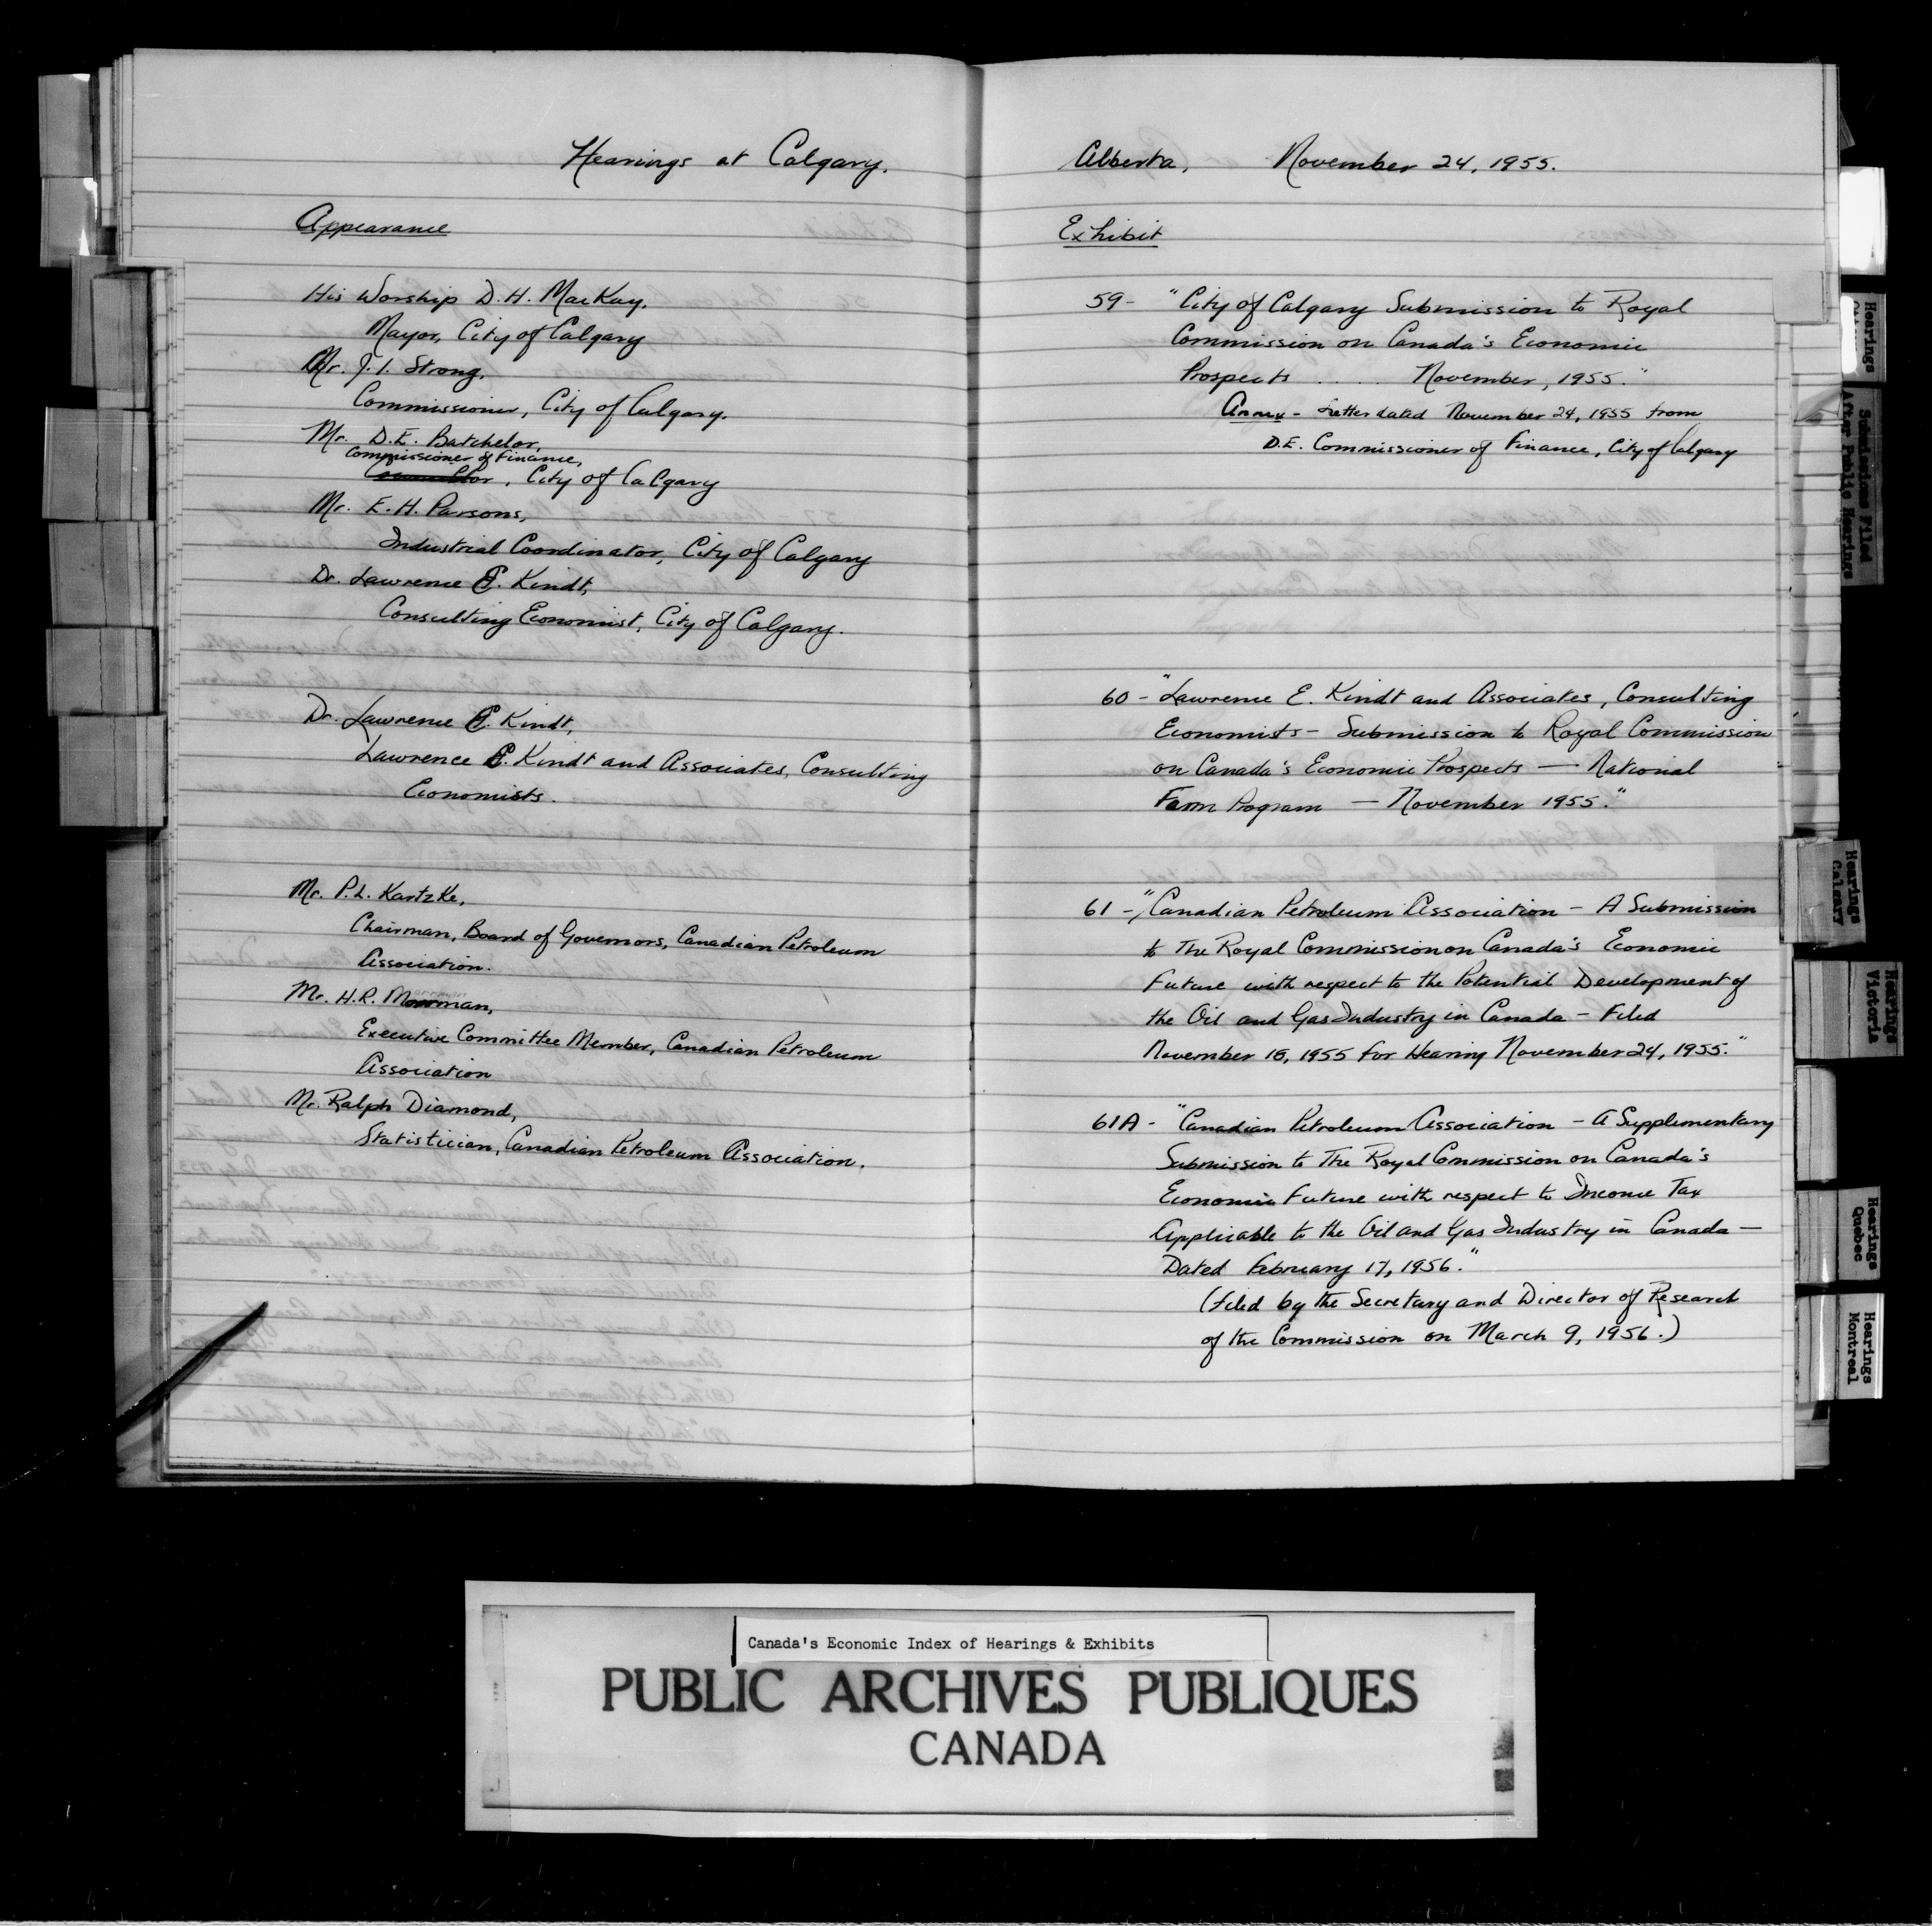 Hearings at Calgary,
Appearance
His Worship D.H. MacKay,
Mayor, City of Calgary
Mr. J.I. Strong,
Commissioner, City of Calgary.
Mr. D.E. Batchelor,
Commissioner of Finance,
, City of Calgary
Mr. E.H. Parsons,
Industrial Coordinator, City of Calgary
Dr. Lawrence E. Kindt,
Consulting Economist, City of Calgary.
Dr. Lawrence E. Kindt,
Lawrence E. Kindt and Associates, Consulting
Economists.
Mr. P.L. Kartzke,
Chairman, Board of Governors, Canadian Petroleum
Association.
Mr. H.R.
Executive Committee Member, Canadian Petroleum
Association
Mr. Ralph Diamond,
Statistician, Canadian Petroleum Association.
Alberta, November 24, 1955.
Exhibit
59- "City of Calgary Submission to Royal
Commission on Canada's Economic
Prospects .... November, 1955."
Annex - Letter dated November 24, 1955 from
D.E. Commissioner of Finance, City of Calgary
60 - "Lawrence E. Kindt and Associates, Consulting
Economists - Submission to Royal Commission
on Canada's Economic Prospects — National
Farm Program — November 1955."
61 - "Canadian Petroleum Association - A Submission
to The Royal Commission on Canada's Economic
Future with respect to the Potential Development of
the Oil and Gas Industry in Canada - Filed
November 15, 1955 for Hearing November 24, 1955."
61A - "Canadian Petroleum Association - A Supplementary
Submission to The Royal Commission on Canada's
Economic Future with respect to Income Tax
Applicable to the Oil and Gas Industry in Canada —
Dated February 17, 1956."
(filed by the Secretary and Director of Research
of the Commission on March 9, 1956.)
Hearings
Submissions Filed
After Public Hearings
Hearings
Calgary
Hearings
Victoria
Hearings
Quebec
Hearings
Montreal
Canada's Economic Index of Hearings & Exhibits
PUBLIC ARCHIVES PUBLIQUES
CANADA